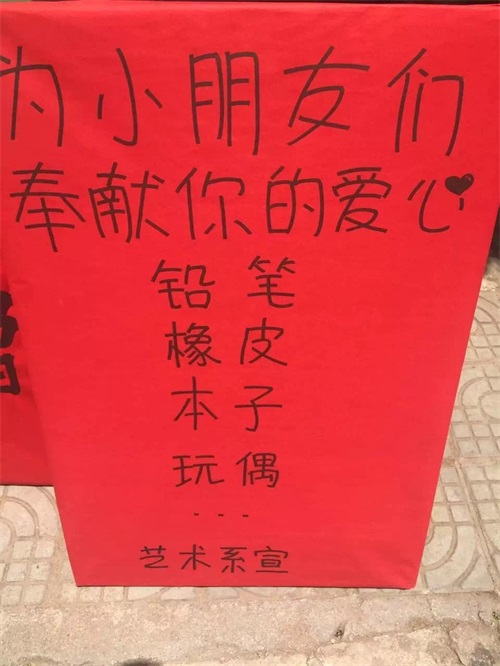 为小朋友们
奉献你的爱心
铅笔
橡皮
本子
玩偶
...
艺术系宣